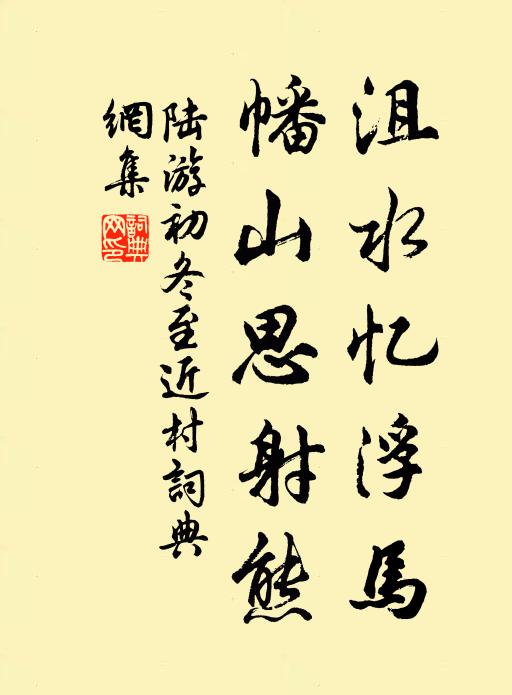 沮水忆浮馬
幡山思射熊
陆游初冬至近村詞典
網集
詞典
网印